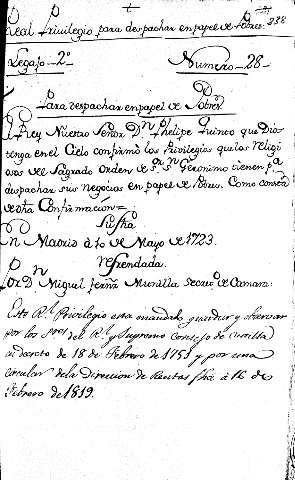 Real Privilegio para despachar en papel de Pobres. 238
Legajo 2º Numero 28
Para despachar en papel de Pobres
El Rey Nuestro Señor Dn Phelipe Quinto que Dios
tenga en el Cielo confirmó los Privilegios que los Religi
osos de Sagrado Orden de Sor Sn Geronimo tienen pa
despachar sus negocios en papel de Pobres. Como consta
de dha Confirmacion =
Su fha
En Madrid á 10 de Mayo de 1723.
Refrendada.
Por Dn Miguel Munilla Secreto de Camara:
Este Rl Privilegio esta mandado guardar y observar
por los Sres del Rl y Supremo Consejo de Castilla
en decreto de 18 de Febrero de 1751 y por una
circular de la Direccion de Rentas fha á 16 de
Febrero de 1819.